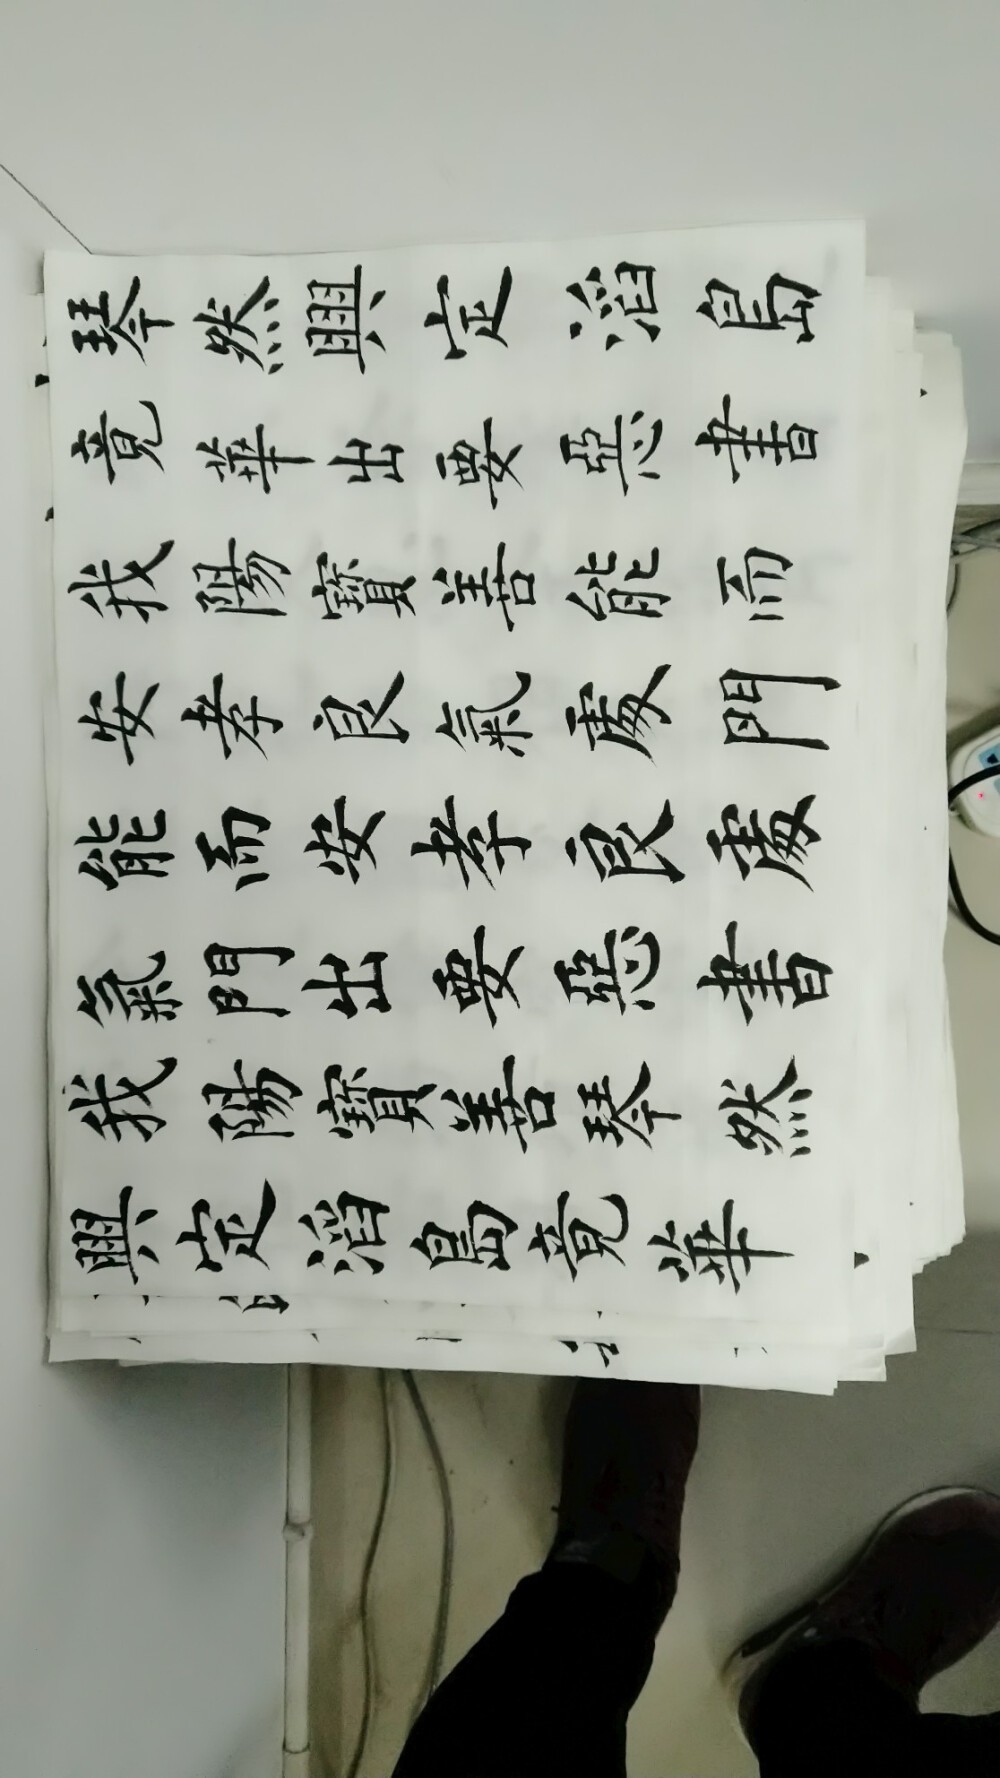 琴然興定滔島
竟華出要惡書
我陽寶善能而
安孝良氣處門
能而安孝良處
氣門出要惡書
我陽寶善琴然
興定滔島竟華